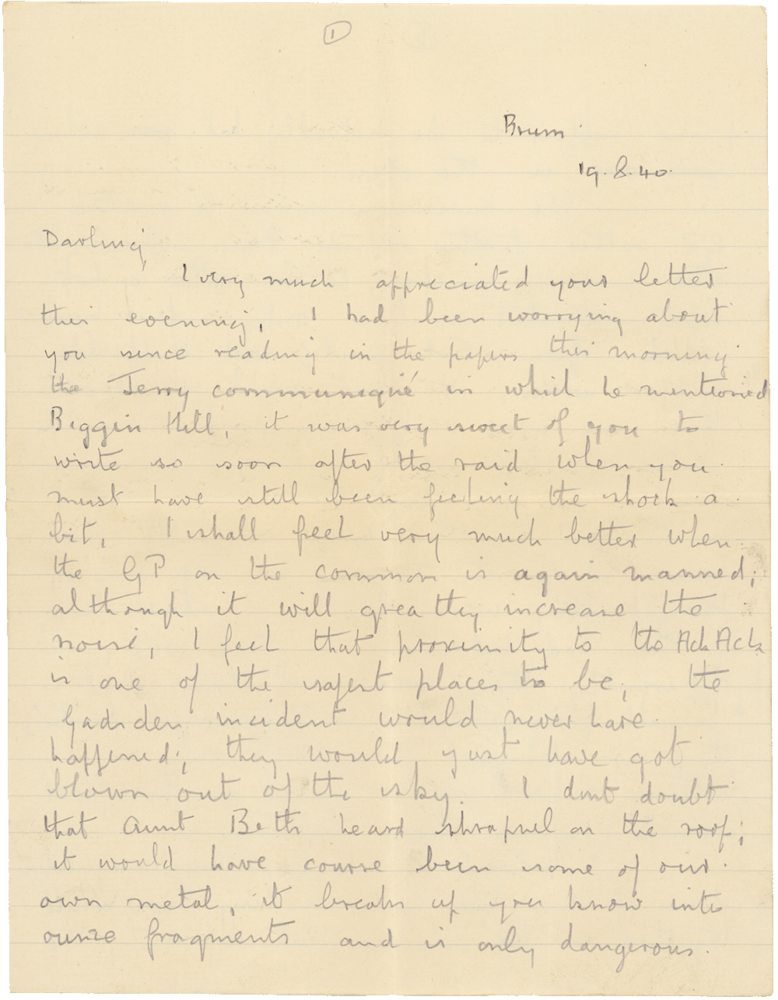 1
Brum.
19.8.40.
Darling,
I very much appreciated your letter
this evening, I had been worrying about
you since reading in the papers this morning
the Jerry communiqué in which he mentioned
Biggin Hill, it was very sweet of you to
write so soon after the raid when you
must have still been feeling the shock a
bit, I shall feel very much better when
the GP on the common is again manned;
although it will greatly increase the
noise, I feel that proximity to the Ack Ack
is one of the safest places to be, the
Gadsden incident would never have
happened; they would just have got
blown out of the sky. I dont doubt
that Aunt Beth heard shrapnel on the roof;
it would have course been some of our
own metal, it breaks up you know into
ounze fragments and is only dangerous.